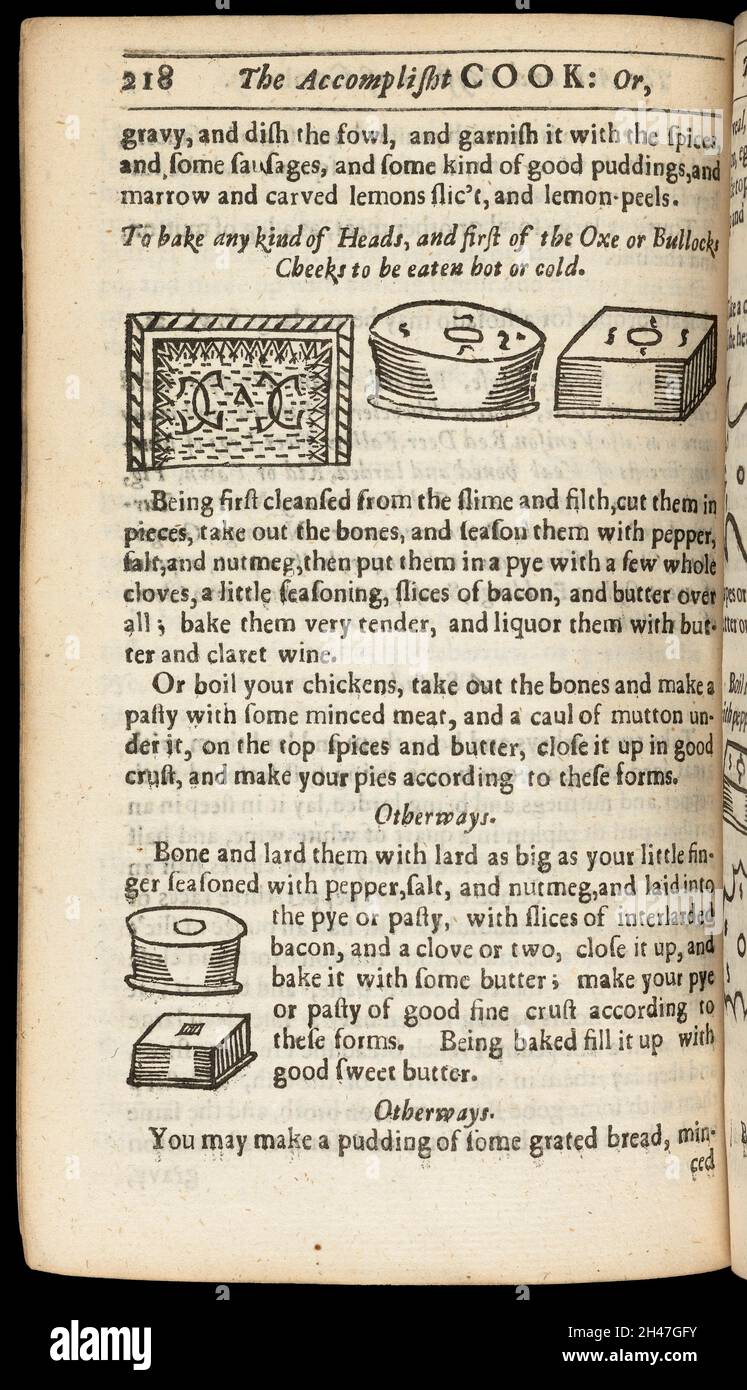 218 The Accompliſht COOK: Or,
gravy, and diſh the fowl, and garniſh it with the ſpices
and ſome ſauſages, and ſome kind of good puddings, and
marrow and carved lemons ſlic't, and lemon-peels.
To bake any kind of Heads, and firſt of the Oxe or Bullocks
Cheeks to be eaten hot or cold.
Being firſt cleanſed from the ſlime and filth, cut them in
pieces, take out the bones, and ſeaſon them with pepper,
ſalt, and nutmeg, then put them in a pye with a few whole
cloves, a little ſeaſoning, ſlices of bacon, and butter over
all; bake them very tender, and liquor them with but-
ter and claret wine.
Or boil your chickens, take out the bones and make a
paſty with ſome minced meat, and a caul of mutton un-
der it, on the top ſpices and butter, cloſe it up in good
cruſt, and make your pies according to theſe forms.
Otherways.
Bone and lard them with lard as big as your little fin-
ger ſeaſoned with pepper, ſalt, and nutmeg, and laid into
the pye or paſty, with ſlices of interlarded
bacon, and a clove or two, cloſe it up, and
bake it with ſome butter; make your pye
or paſty of good fine cruſt according to
theſe forms. Being baked fill it up with
good ſweet butter.
Otherways.
You may make a pudding of ſome grated bread, min-
ced
alamy
Image ID: 2H47GFY
www.alamy.com